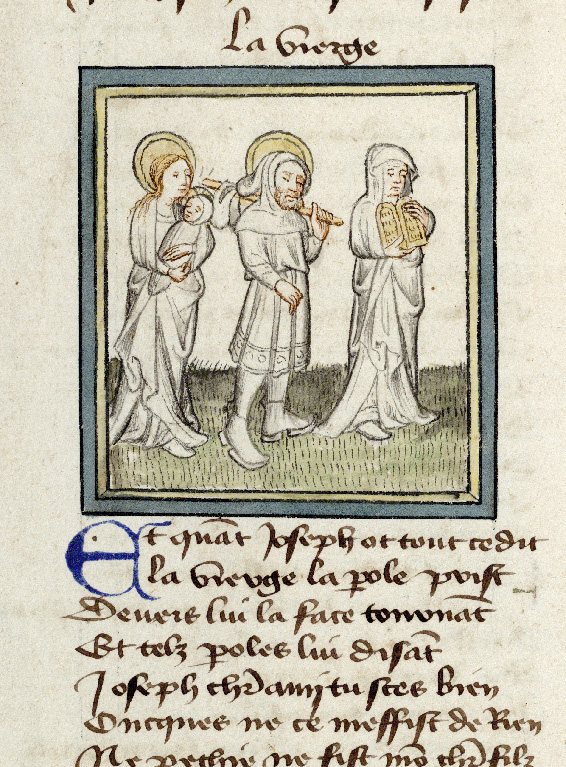 La vierge
Et quāt Joseph ot tout ce dit
La vierge la pole prist
Devers lui la face tornnāt
Et telz poles lui disāt
Joseph chr̄ amy tu sces bien
Oncques ne ce meffist de Rien
Ne pechie ne fist mō chr̄ filz